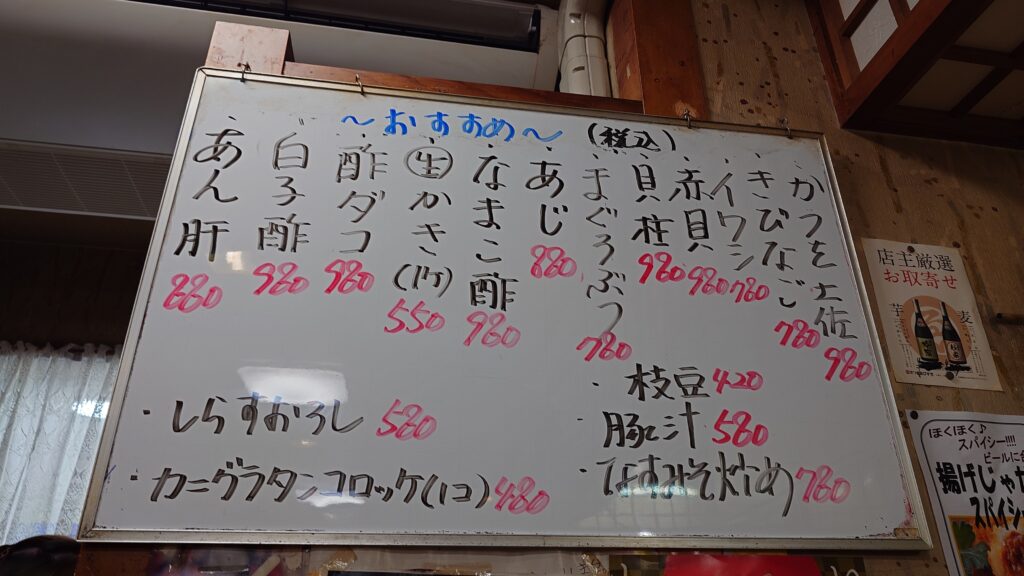 ～おすすめ～ (税込)
・かつを土佐 980
・きびなご 780
・イワシ 780
・赤貝 980
・貝柱 980
・まぐろぶつ 780
・あじ 880
・なまこ酢 980
・生かき(1ケ) 550
・酢ダコ 980
・白子酢 980
・あん肝 880
・枝豆 420
・豚汁 580
・なすみそ炒め 780
・しらすおろし 580
・カニグラタンコロッケ(1コ) 480
店主厳選
お取寄せ
芋
麦
ほくほく♪
スパイシー!!!!
ビールに合
揚げじゃが
スパイシ